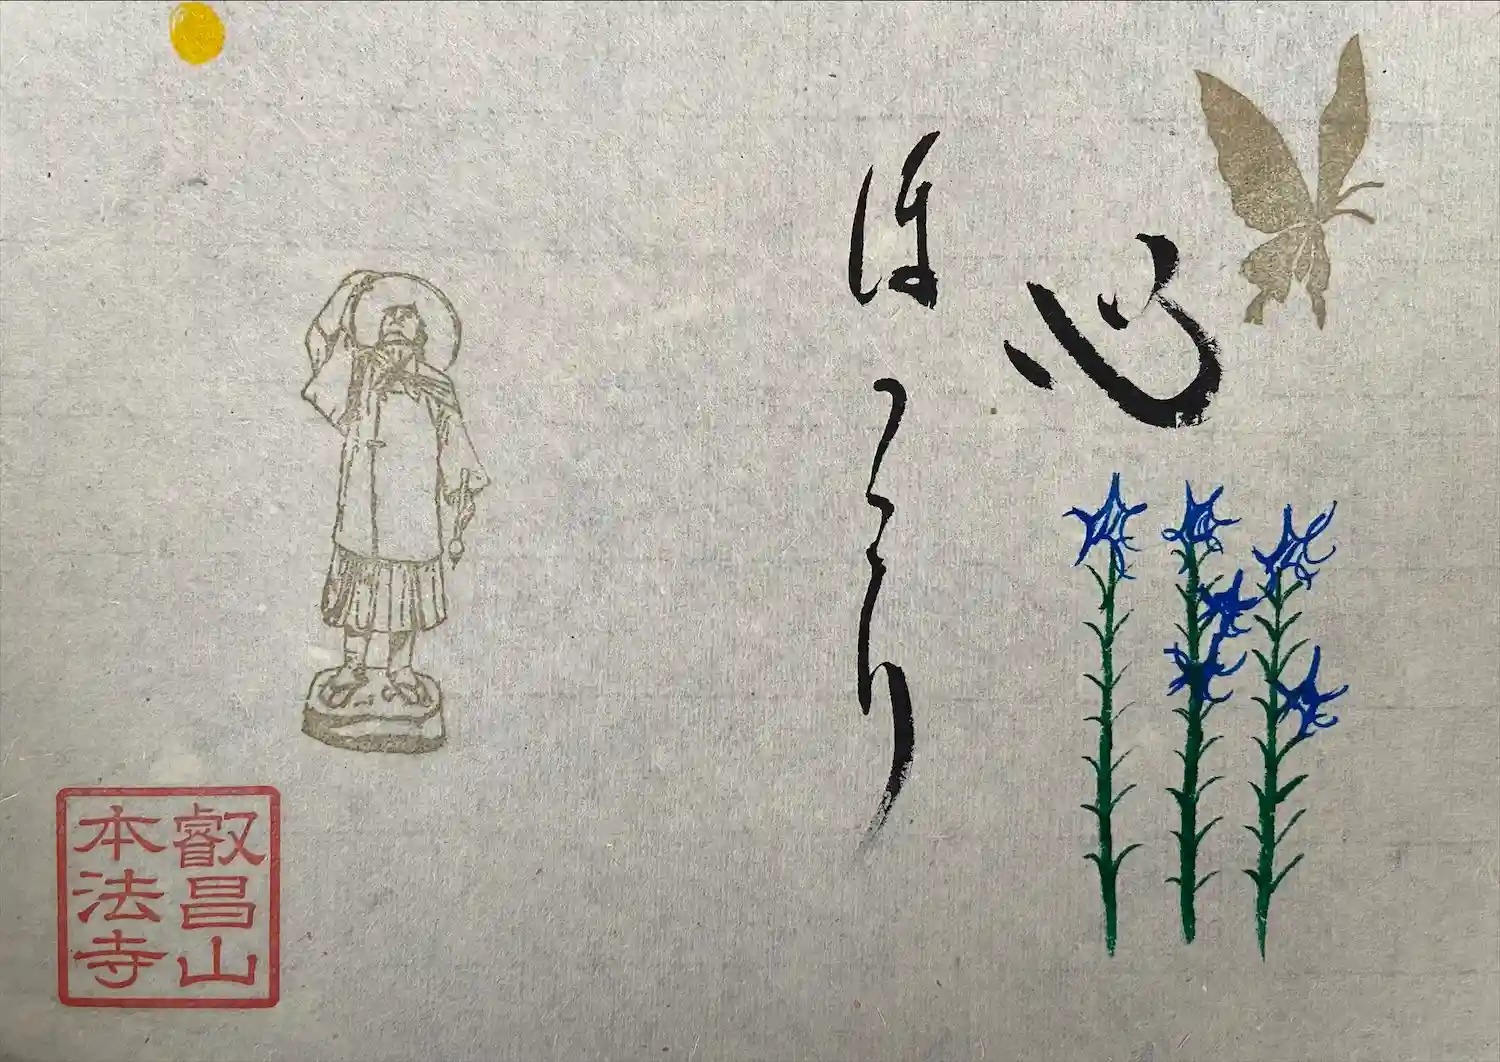 心
ほっこり
叡昌山
本法寺